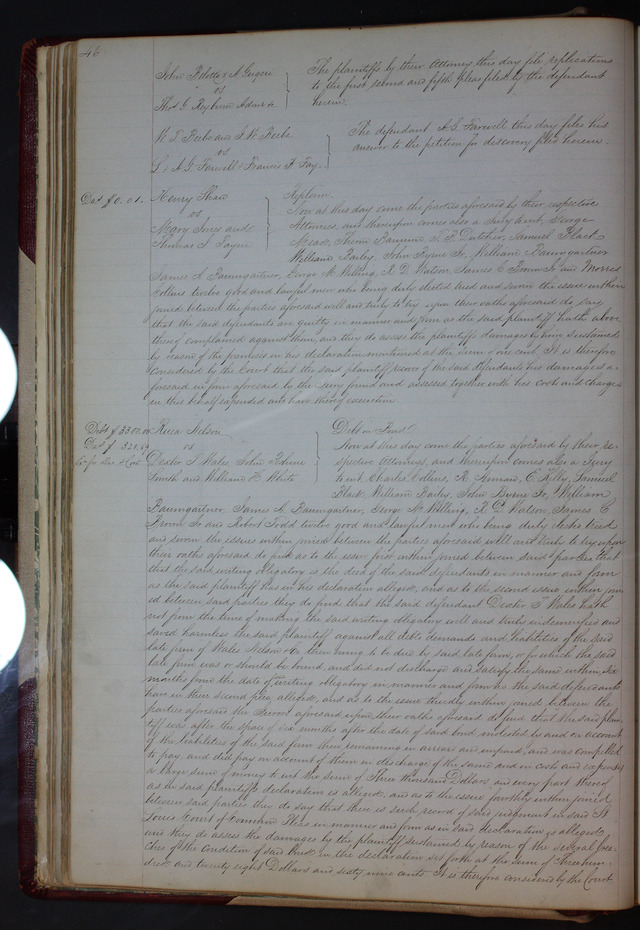 46
John & A
vs
Thos G Reyburn Admr &c
The plaintiffs by their Attorney this day file replications
to the first, second and fifth pleas filed by the defendant
herein.
and
vs
L & A G Farwell & Francis F Fay
The defendant A G Farwell this day files his
answer to the petition for discovery filed herein.
Dat $0.01. Henry Shaw
vs
Mary Jones and
Thomas J Payne
Replevin
Now at this day come the parties aforesaid by their respective
Attornies, and thereupon comes also a Jury to wit, George
Mead, Thorn T P Dutcher, Samuel Flack
William Bailey John Byrne Jr, William Baumgartner
James A Baumgartner, George M Willing, R D Watson, James C Brown Jr and Morris
Collins twelve good and lawful men who being duly elected tried and sworn the issue within
joined between the parties aforesaid well and truly to try upon their oaths aforesaid do say
that the said defendants are guilty in manner and form as the said plaintiff hath above
thereof complained against them, and they do assess the plaintiffs damages by him sustained
by reason of the premises in his declaration mentioned at the sum of one cent. It is therefore
considered by the Court that the said plaintiff recover of the said defendants his damages a-
foresaid in form aforesaid by the Jury found and assessed together with his costs and charges
in this behalf expended and have thereof execution.
Debt $3300.00 Nelson
Dat $ 328.69 vs
Dexter S Wales John Edwin
Smith and William E White
Debt on Bond
Now at this day come the parties aforesaid by their re-
spective Attornies, and thereupon comes also a Jury
to wit Charles Collins, E Kelly, Samuel
Flack, William Bailey, John Byrne Jr, William
Baumgartner, James A Baumgartner, George M Willing, R D Watson, James C
Brown Jr and Robert Todd twelve good and lawful men who being duly electo tried
and sworn the issues within joined between the parties aforesaid well and truly to try upon
their oaths aforesaid do find as to the issue first within joined between said parties that
that the said writing obligatory is the deed of the said defendants in manner and form
as the said plaintiff has in his declaration alleged, and as to the second issue within join
ed between said parties they do find that the said defendant Dexter S Wales hath
not from the time of making the said writing obligatory well and truly indemnified and
saved harmless the said plaintiff against all debts demands and liabilities of the said
late firm of Wales Nelson & Co then owing to be due by said late firm, or for which the said
late firm was or should be bound, and did not discharge and satisfy the same within six
months from the date of writing obligatory in manner and form as the said defendants
have in their second plea, alleged, and as to the issue thirdly within joined between the
parties aforesaid the Jurors aforesaid upon their oaths aforesaid do find that the said plain
tiff was after the space of six months after the date of said bond molested by and on account
of the liabilities of the said firm then remaining in arrear and unpaid, and was compelled
to pay and did pay on account of them in discharge of the same and in costs and expenses
a large sum of money to wit the sum of Three thousand Dollars and every part thereof
as in said plaintiffs declaration is alleged, and as to the issue fourthly within joined
between said parties they do say that there is such record of said judgment in said St
Louis Court of Common Pleas in manner and form as in said declaration is alleged
and they do assess the damages by the plaintiff sustained by reason of the several brea
ches of the condition of said Bond in the declaration set forth at the sum of Three hun-
dred and twenty eight Dollars and sixty nine cents It is therefore considered by the Court